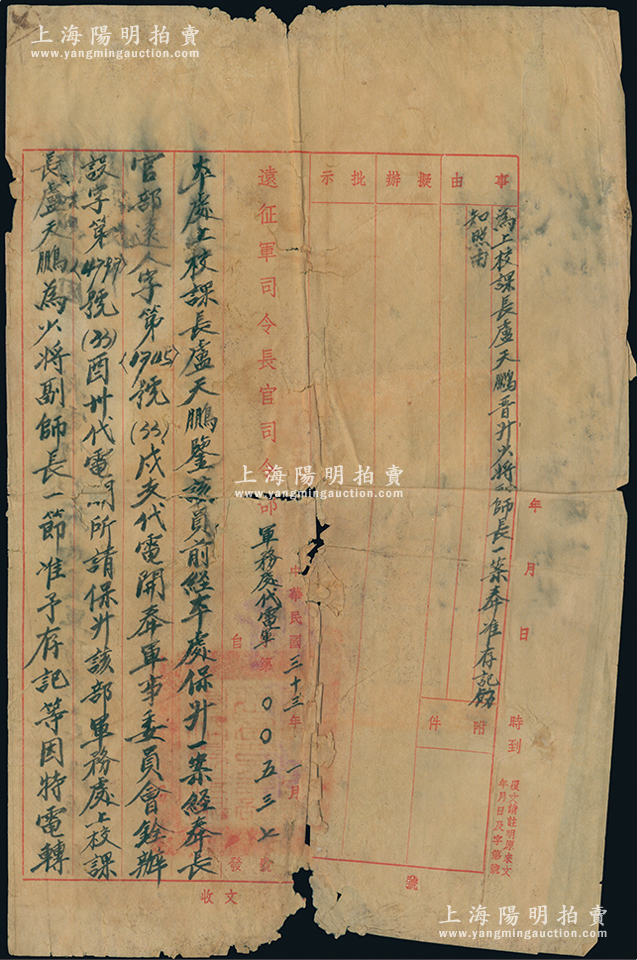 上海陽明拍賣
www.yangmingauction.com
事由
擬辦
批示
為上校課長盧天鵬晉升少將副師長一案奉准存記飭
知照由
年月日
時到
附件
號
復文請註明原來文
年月日及字第號
遠征軍司令長官司令部
軍務處代電軍第〇〇五三七號
中華民國三十三年一月
自
發
收文
本處上校課長盧天鵬鑒該員前經本處保升一案經奉長
官部遠人字第(1945)號(33)戌支代電開奉軍事委員會銓辦
設字第4797號(33)酉卅代電開所請保升該部軍務處上校課
長盧天鵬為少將副師長一節准予存記等因特電轉
上海陽明拍賣
www.yangmingauction.com
上海陽明拍賣
www.yangmingauction.com